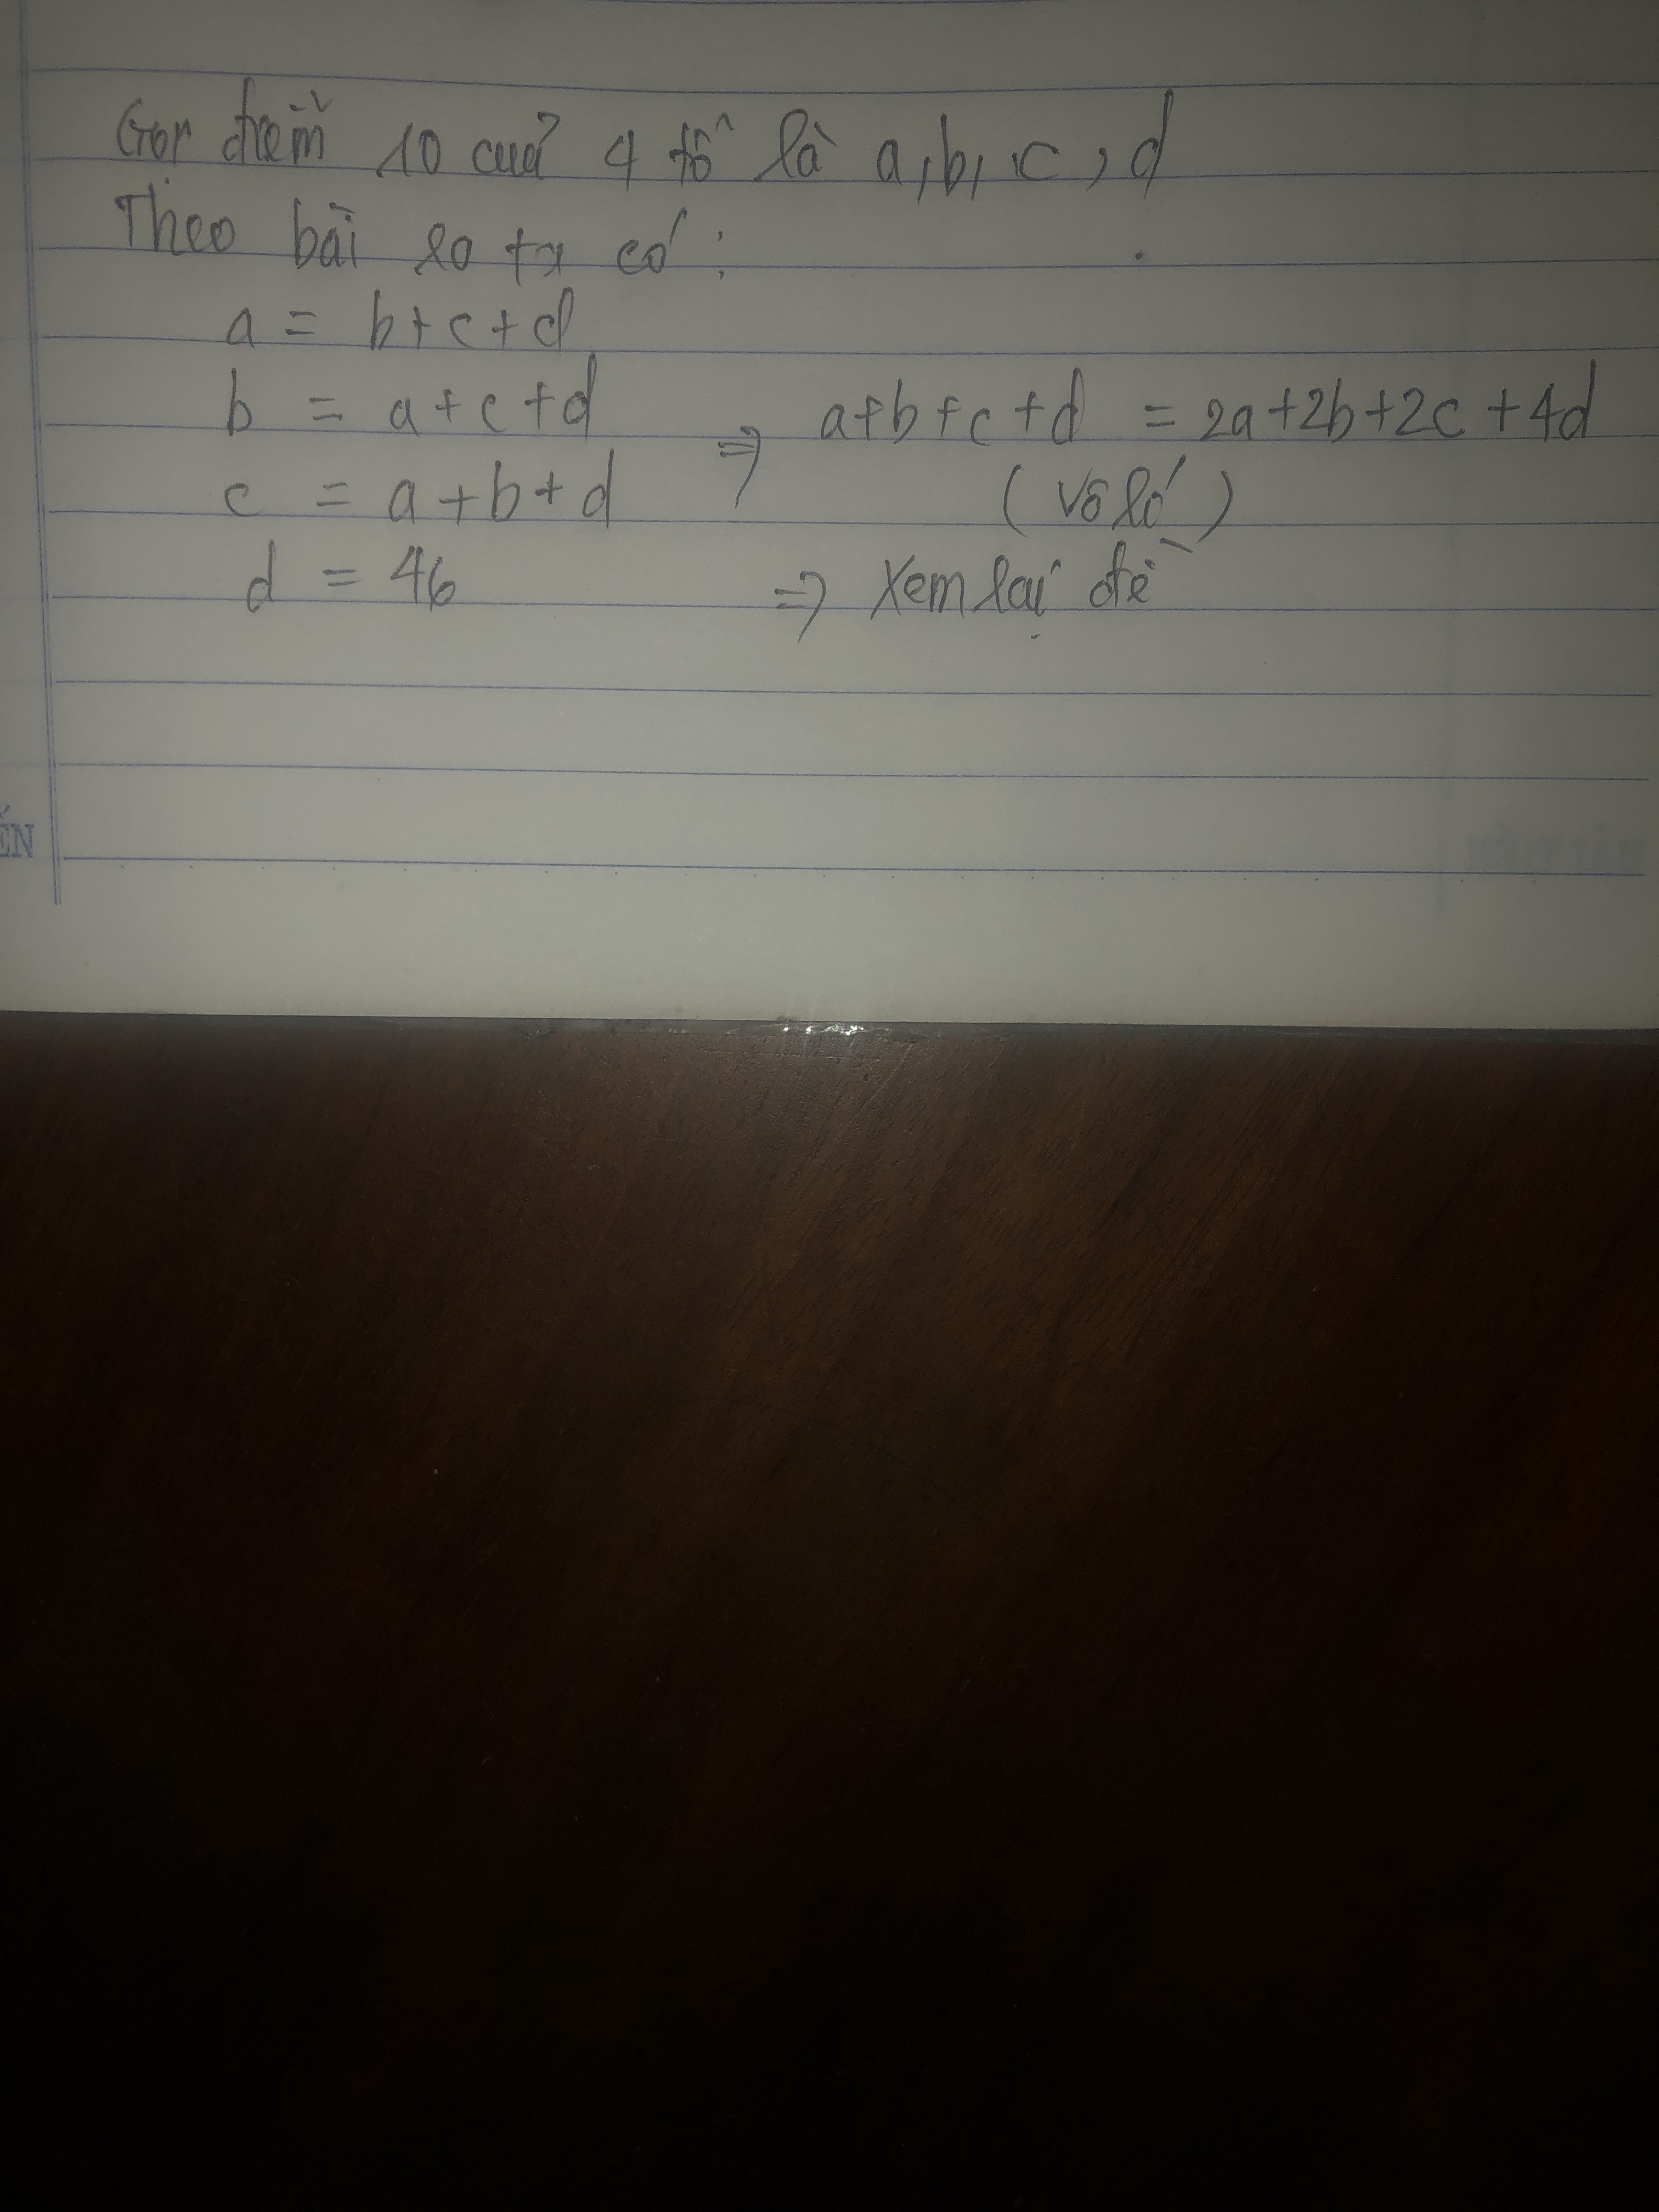 Gọi điểm 10 của 4 tổ là a, b, c, d
Theo bài ra ta có:
a = b + c + d
b = a + c + d
c = a + b + d
d = 46
⇒ a + b + c + d = 2a + 2b + 2c + 4d
(vô lý)
⇒ Xem lại đề
ẾN